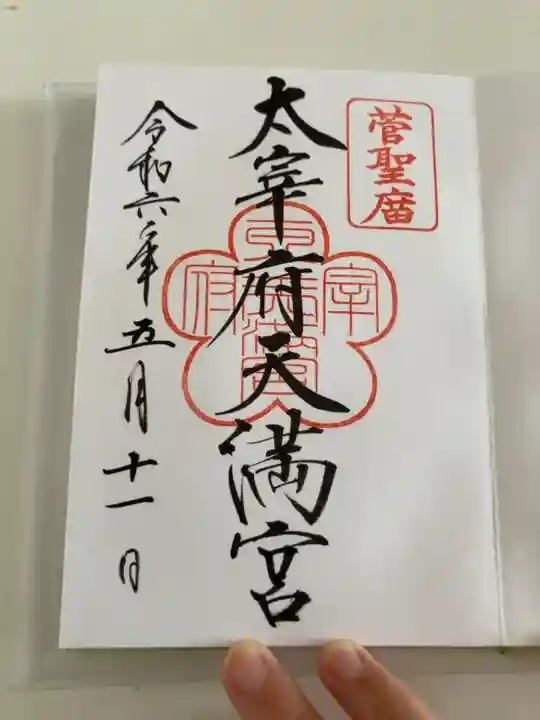 菅聖庿
太宰府天満宮
令和六年五月十一日